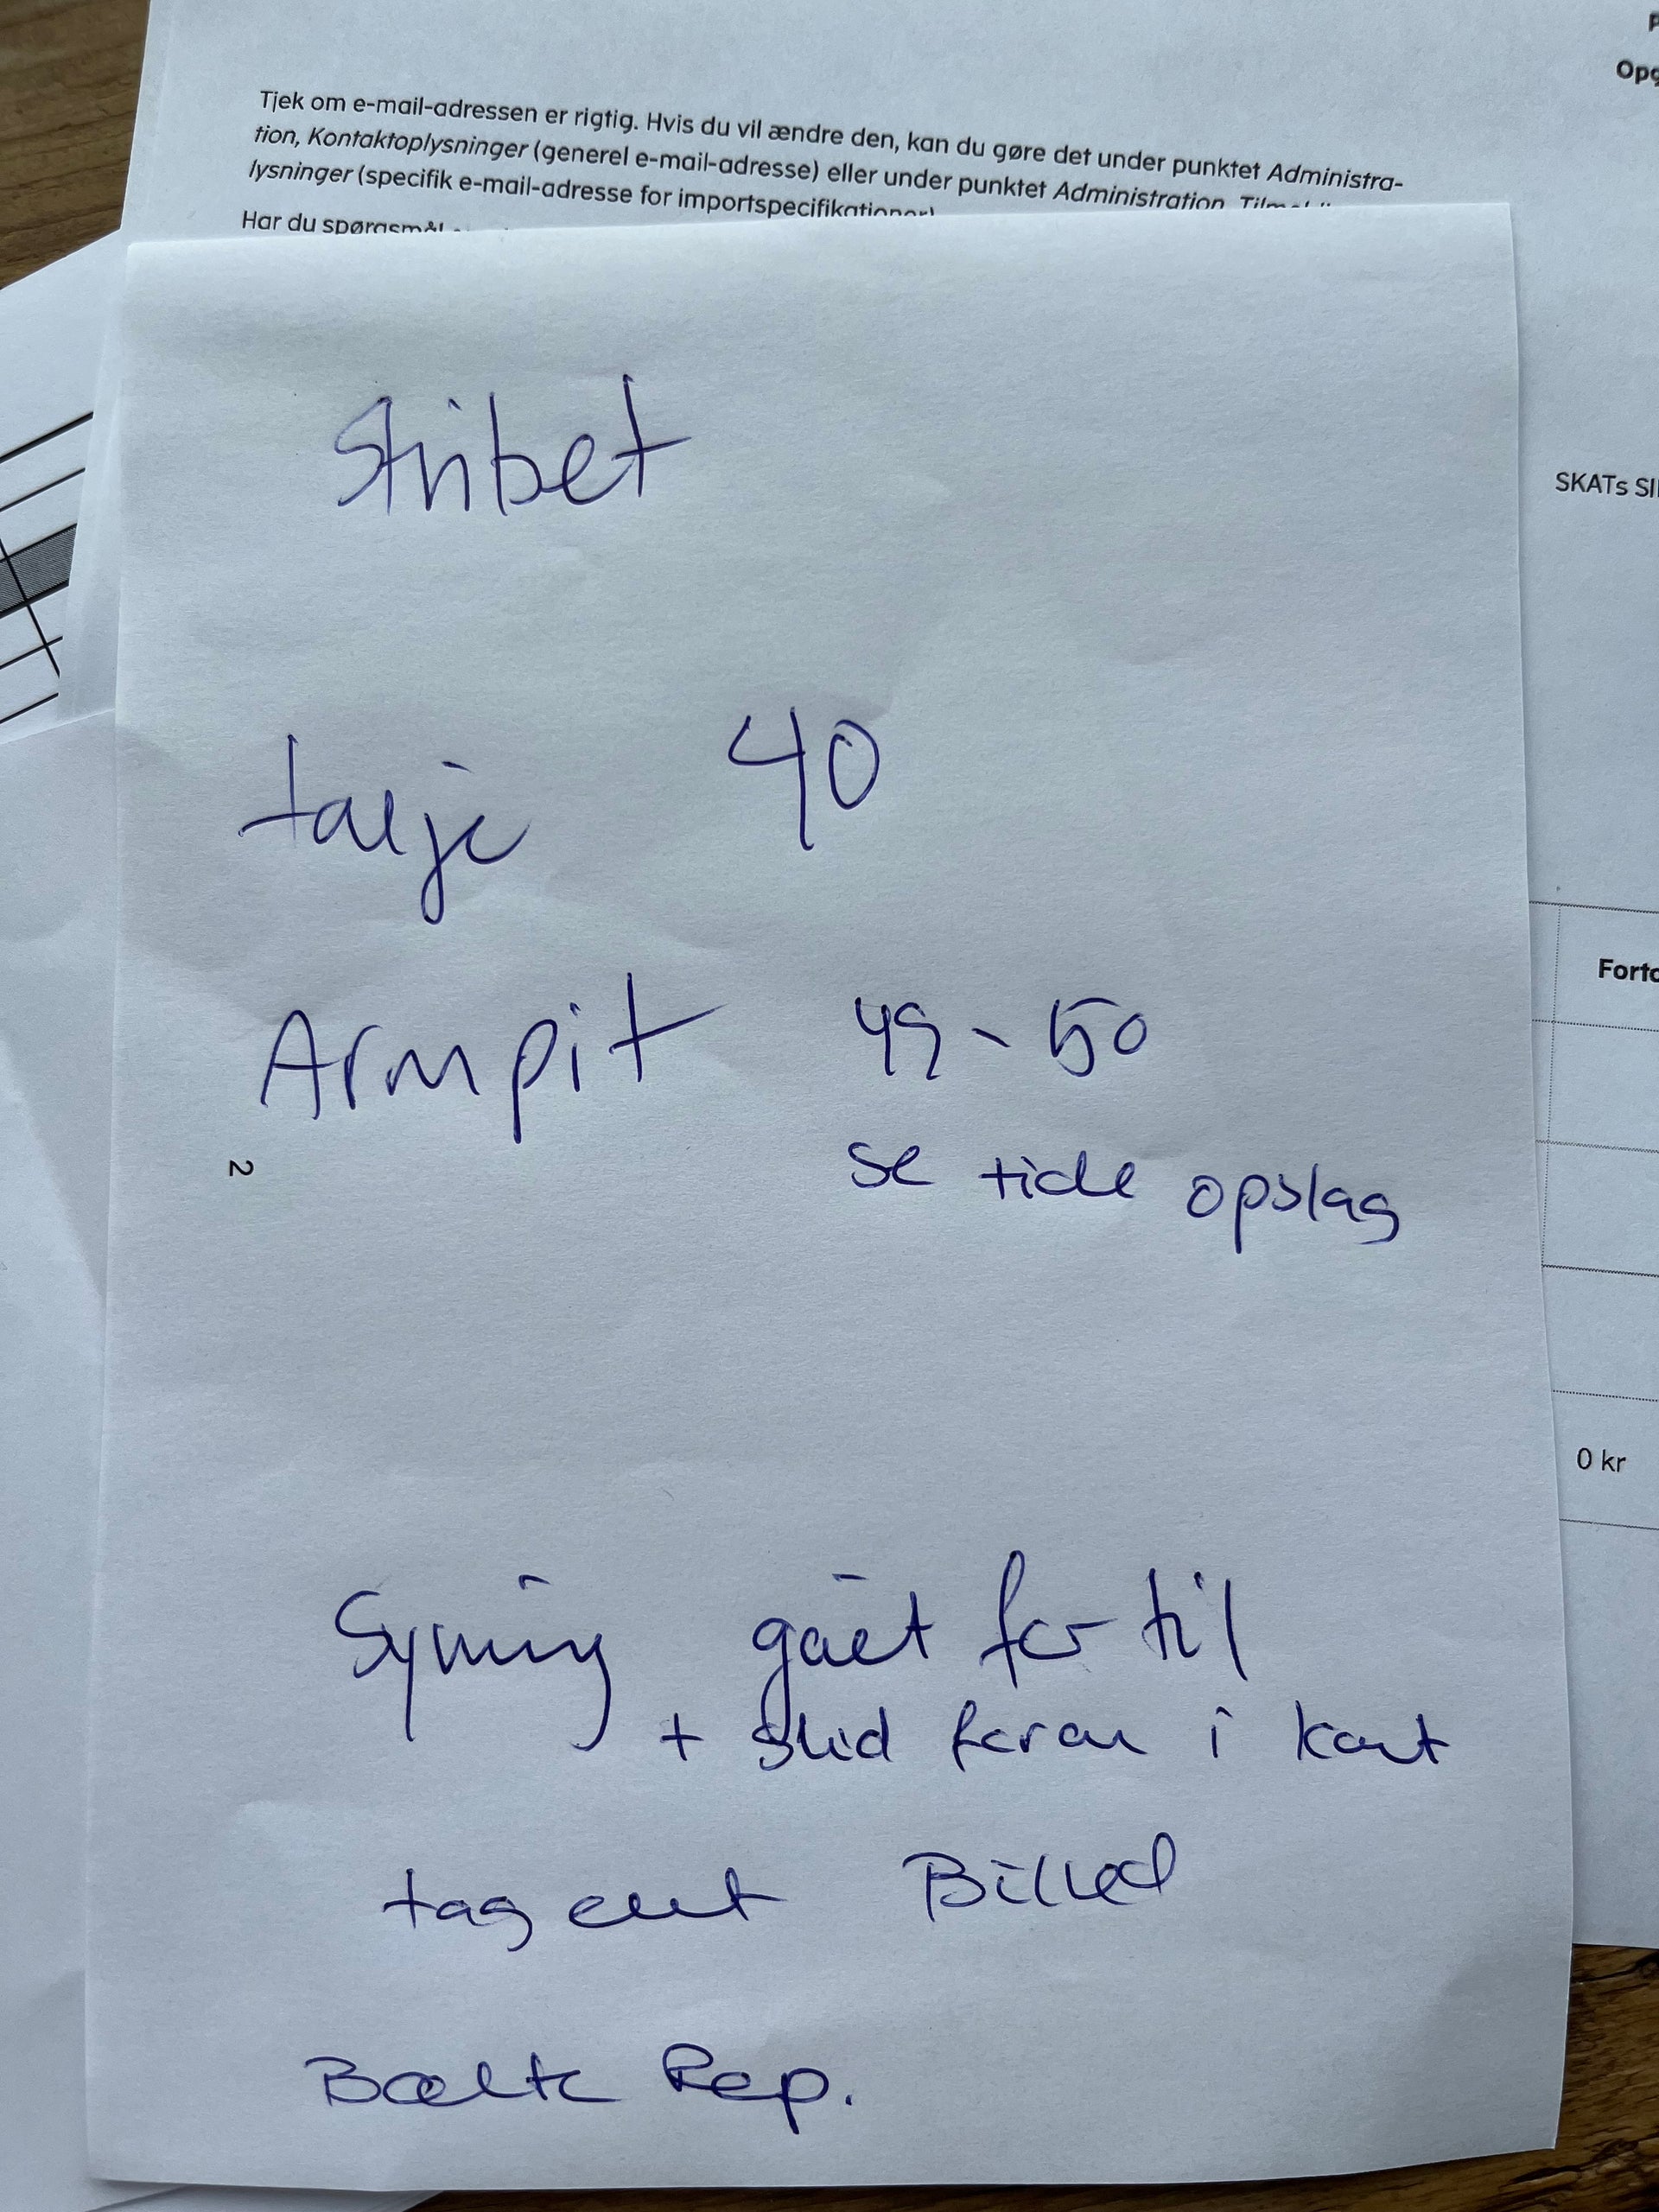 P
Opg
Tjek om e-mail-adressen er rigtig. Hvis du vil ændre den, kan du gøre det under punktet Administra-
tion, Kontaktoplysninger (generel e-mail-adresse) eller under punktet Administration, Tilmeldi
lysninger (specifik e-mail-adresse for importspecifikationer)
Har du spørgsmål
SKATs SI
Stribet
talje 40
Armpit 49-50
se tidl opslag
2
Forto
0 kr
Syning gået for til
+ slid foran i kant
tag evt Billed
Bælte Rep.